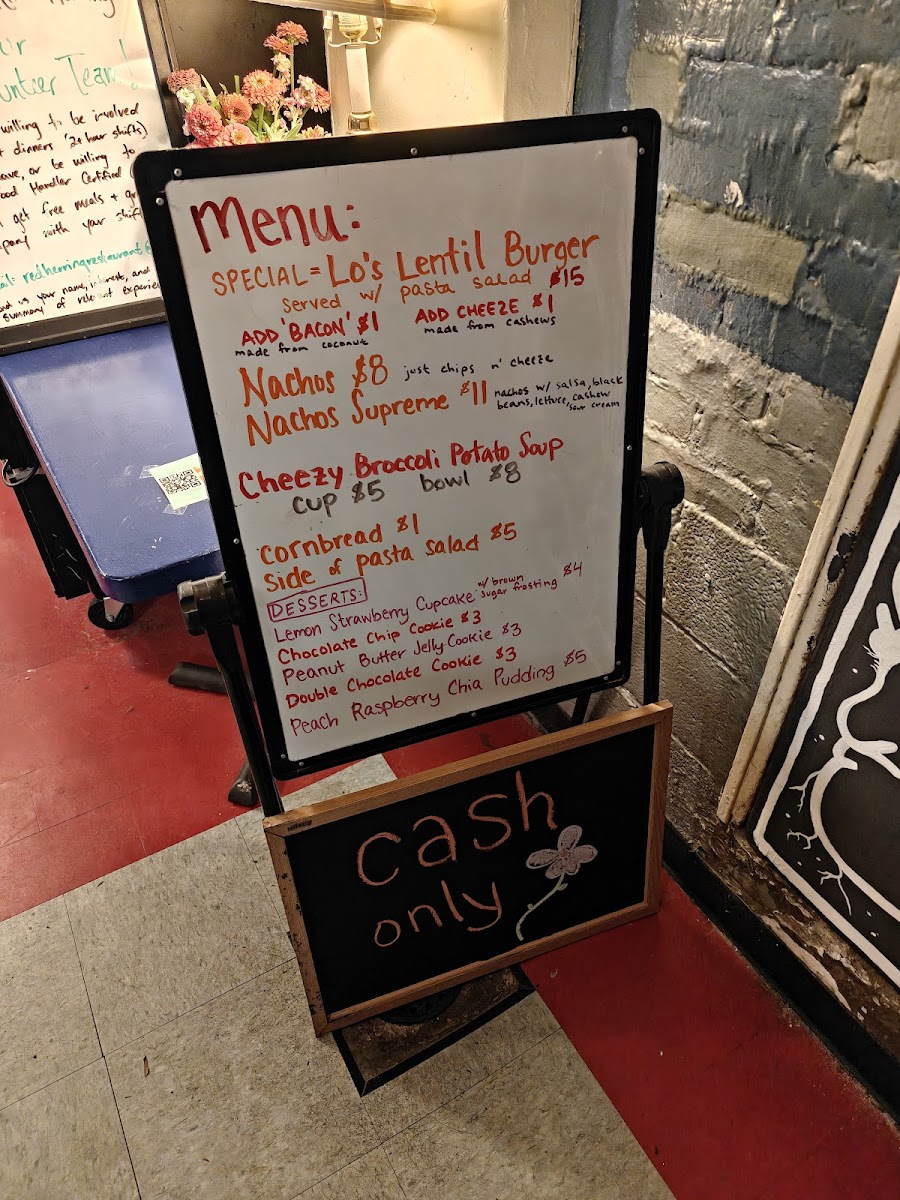 ur
Team!
willing to be involved
dinners (2+ hour shifts)
have, or be willing to
Food Handler Certified
get free meals +
with your shift
redherringrestaurant
us your name, interest, and
summary of relevant experience
Menu:
SPECIAL = Lo's Lentil Burger
served w/ pasta salad $15
ADD 'BACON' $1 ADD CHEEZE $1
made from coconut made from cashews
Nachos $8 just chips n' cheeze
Nachos Supreme $11 nachos w/ salsa, black
beans, lettuce, cashew
sour cream
Cheezy Broccoli Potato Soup
cup $5 bowl $8
cornbread $1
side of pasta salad $5
DESSERTS:
Lemon Strawberry Cupcake w/ brown
sugar frosting $4
Chocolate Chip Cookie $3
Peanut Butter Jelly Cookie $3
Double Chocolate Cookie $3
Peach Raspberry Chia Pudding $5
cash
only